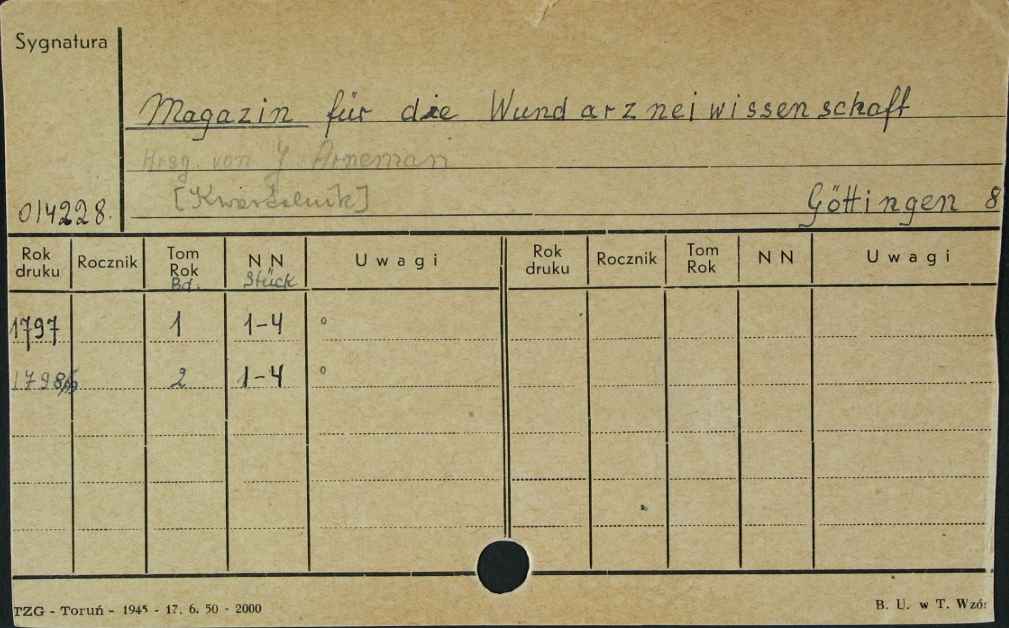 Sygnatura
Magazin für die Wundarzneiwissenschaft
Hrsg. von J. Arneman
[Kwartalnik]
014228.
Göttingen 8
Rok druku Rocznik Tom Rok Bd. NN Stück Uwagi Rok druku Rocznik Tom Rok NN Uwagi
1797 1 1-4 °
1798/ 2 1-4 °
TZG - Toruń - 1945 - 17. 6. 50 - 2000
B. U. w T. Wzór